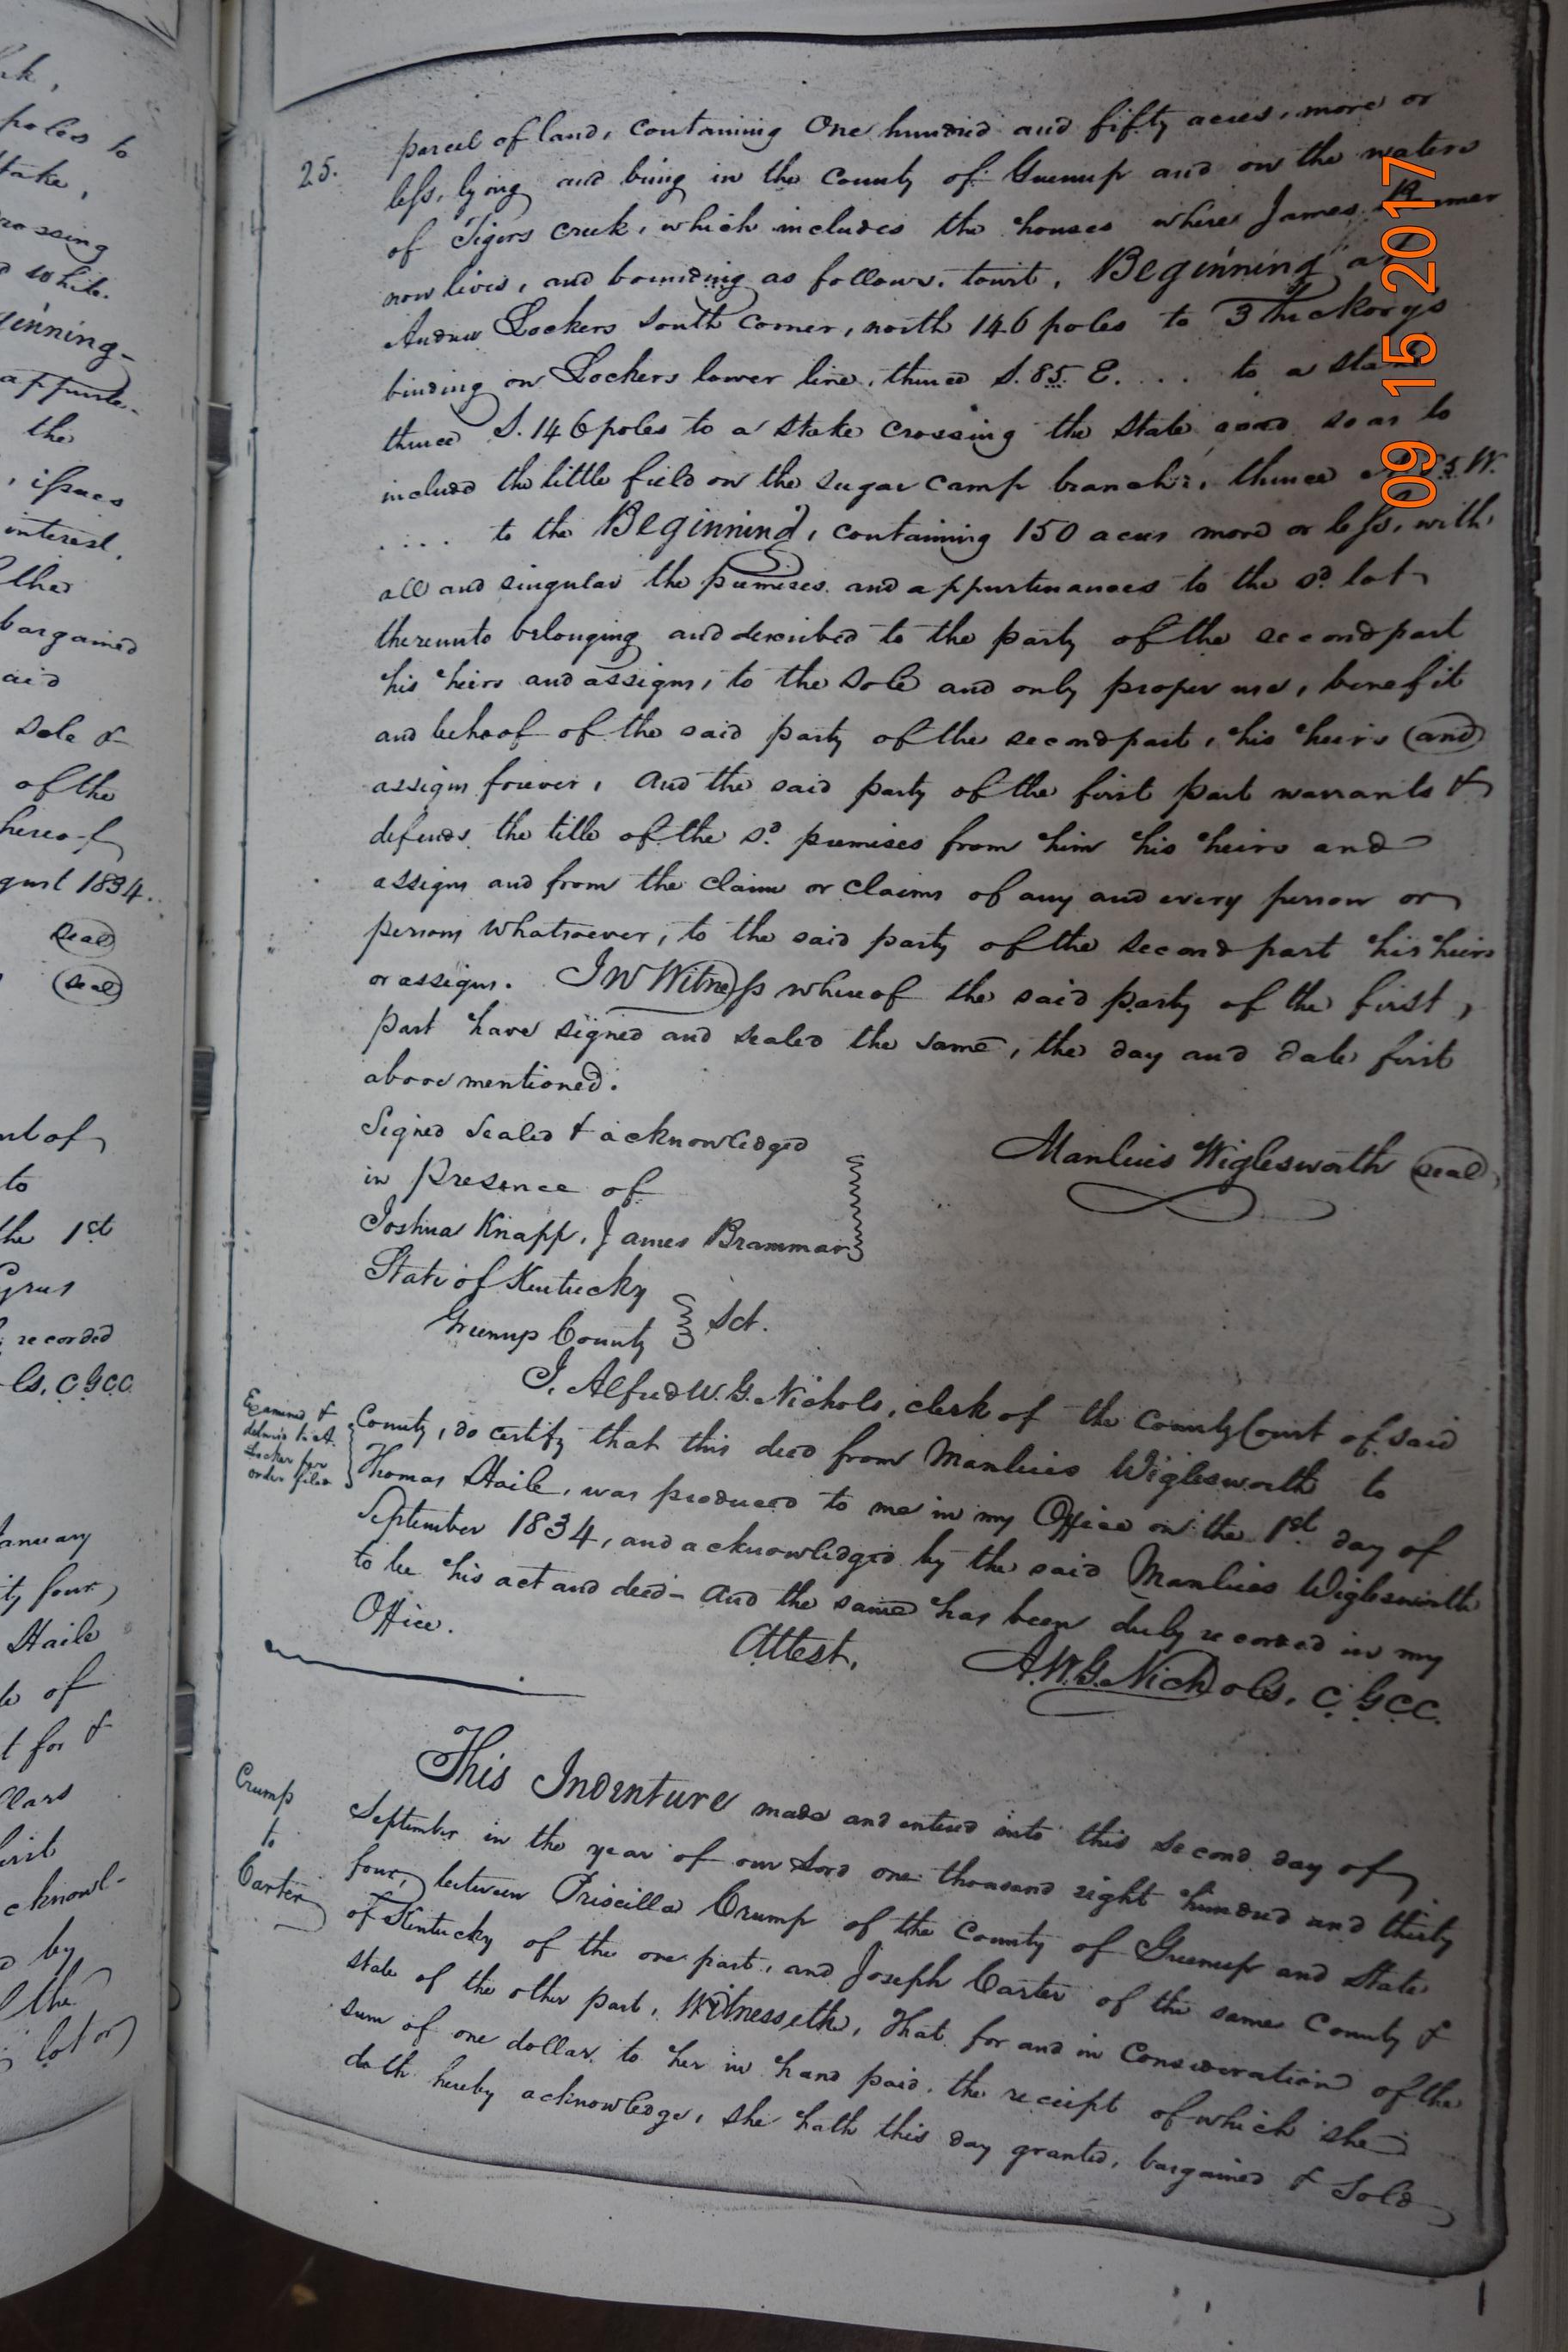 25.
parcel of land, containing One hundred and fifty acres, more or
less, lying and being in the County of Greenup and on the waters
of Tigers creek, which includes the houses where James
now lives, and bounding as follows, towit, Beginning at
Andrew Lockers south corner, north 146 poles to 3 hickorys
binding on Lockers lower line, thence S. 85. E. .... to a stake
thence S. 146 poles to a stake crossing the state road so as to
include the little field on the sugar camp branch, thence W.
.... to the Beginning, containing 150 acres more or less, with
all and singular the premises and appurtenances to the sd. lot
thereunto belonging and described to the party of the second part
his heirs and assigns, to the sole and only proper use, benefit
and behoof of the said party of the second part, his heirs and
assigns forever, And the said party of the first part warrants &
defends the title of the sd. premises from him his heirs and
assigns and from the claim or claims of any and every person or
persons whatsoever, to the said party of the second part his heirs
or assigns. In Witness whereof the said party of the first,
part have signed and sealed the same, the day and date first
above mentioned.
Signed sealed & acknowledged
in presence of
Manlius Wiglesworth seal
Joshua Knapp, James Brammar
State of Kentucky
Greenup County Sct.
I, Alfred W. G. Nichols, clerk of the County Court of said
County, do certify that this deed from Manlius Wiglesworth to
Thomas Haile, was produced to me in my Office on the 1st day of
September 1834, and acknowledged by the said Manlius Wiglesworth
to be his act and deed - And the same has been duly recorded in my
Office.
Attest, A. W. G. Nichols, C. G. C. C.
Examined &
Locker per
order filed
This Indenture made and entered into this second day of
September in the year of our Lord one thousand eight hundred and thirty
four, between Priscilla Crump of the County of Greenup and State
of Kentucky of the one part, and Joseph Carter of the same County &
state of the other part, Witnesseth, That for and in Consideration of the
sum of one dollar to her in hand paid, the receipt of which she
doth hereby acknowledge, she hath this day granted, bargained & sold
Crump
to
Carter
09 15 2017
poles to
stake,
white.
the
, issues
interest,
bargained
sole &
of the
hereof
1834.
seal
seal
to
the 1st
recorded
C.G.C.C.
Haile
of
for &
by
the
lot or